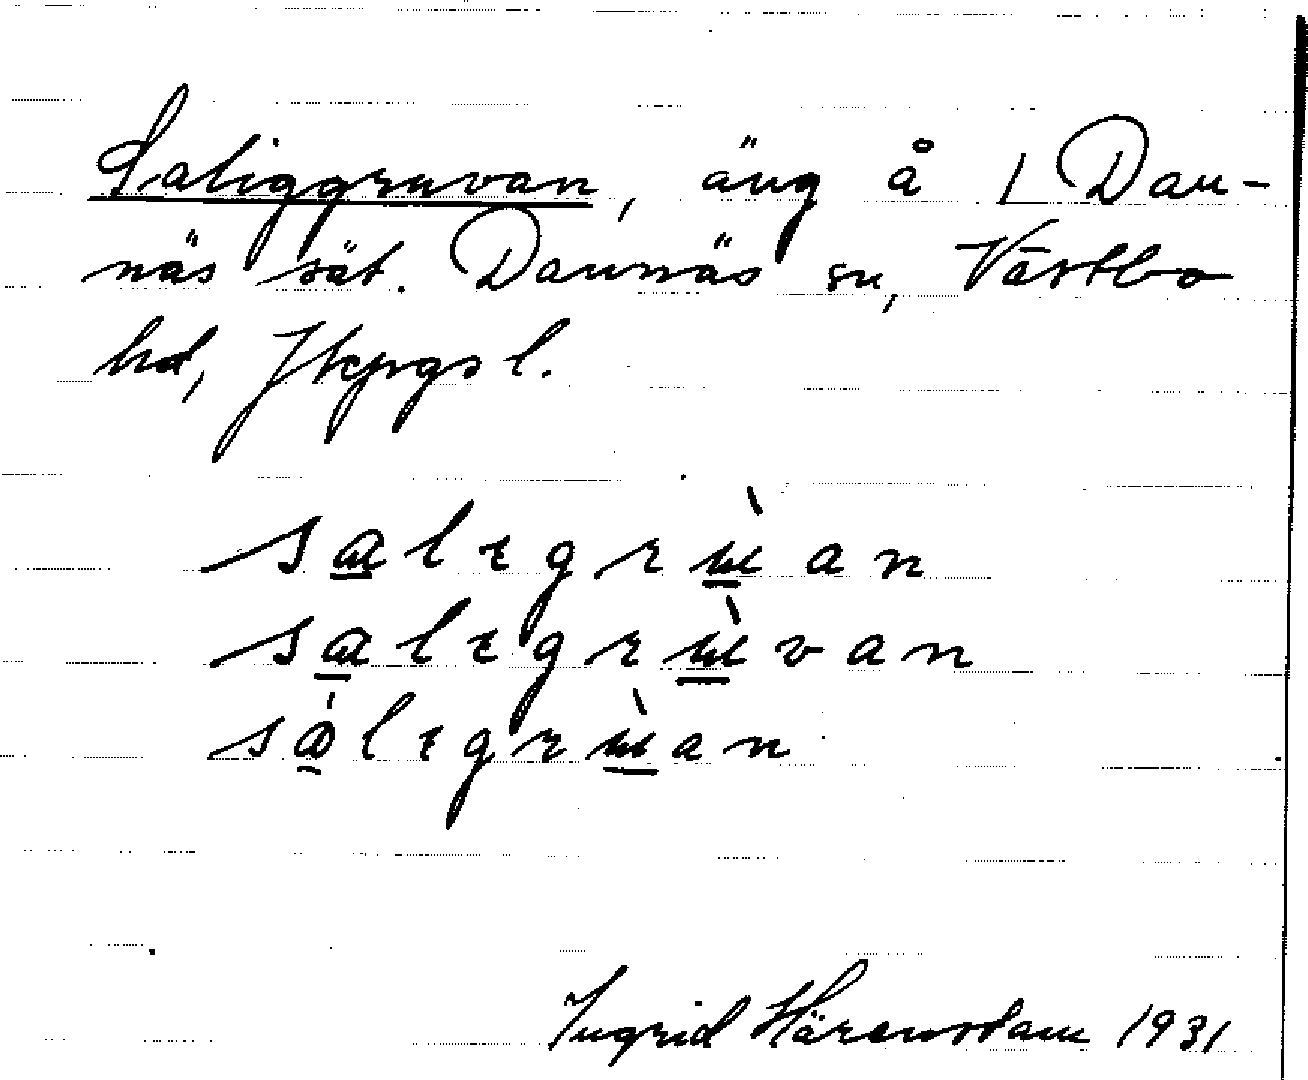 Saliggruvan, äng å 1 Dan-
näs sät. Dannäs sn, Västbo
hd, Jkpgs l.
salegrùan
salegrùvan
sálegrùan
Ingrid Härenstam 1931